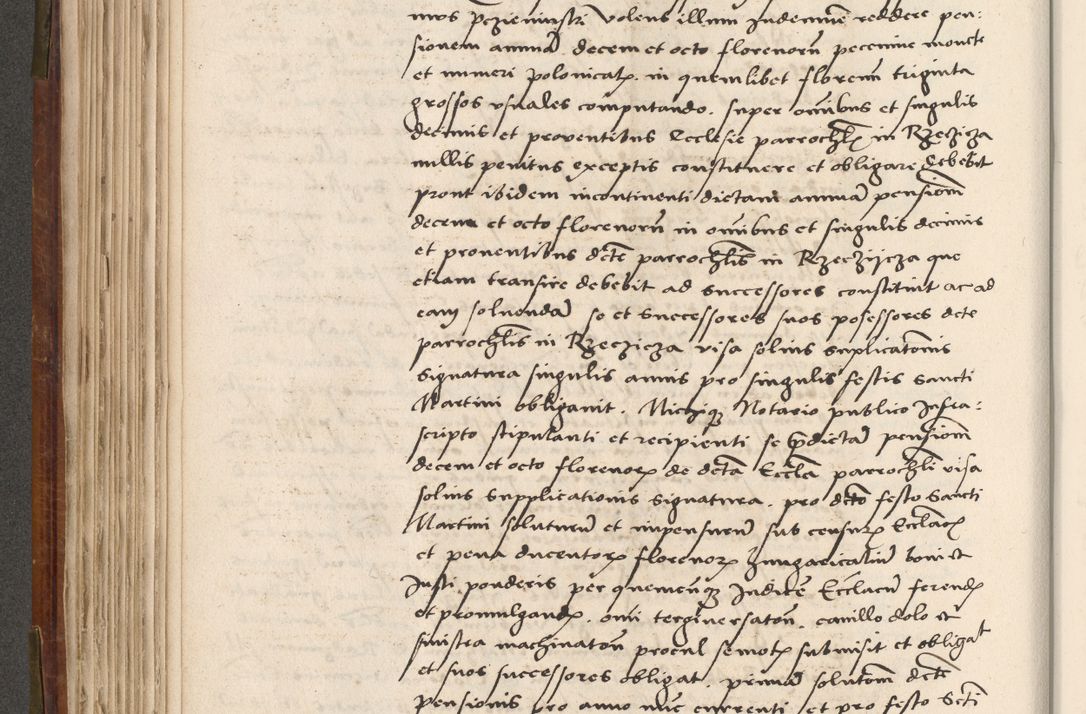 mos Pczieminski volens illum Indemnē reddere pen:
sionem annuā decem et octo florenorū peccunie monete
et numeri polonicat in quemlibet florenū triginta
grossos usuales computando, super omībus et singulis
decimis et proventibus Ecclesie parrochl in Rzeczicza
nullis penitus exceptis constituere et obligare debebit
prout ibidem incontinenti dictam annuā pensionē
decem et octo florenorū in omībus et singulis decimis
et proventibus dcte parrochlis in Rzeczijcza que
etiam transire debebit ad successores constituit ac ad
eam solvendā se et successores suos possessores dcte
parrochlis in Rzeczicza visa solius suplicationis
signatura singulis annis pro singulis festis Sancti
Martini obliganit. Michiq Notario publico Infra:
scripto stipulanti et recipienti se pdictā pensionē
decem et octo florenor de dcta Eccla parrochli visa
solius supplicationis signatura, pro dcto festo Sancti
Martini soluturū et impensurū sub censur Ecclac
et pena ducentor florenor hungaricaliū boni et
Iusti ponderis per quemcunq Iudicē Ecclacū ferend
et promulgand, omi tergiversatōn, cavillo dolo et
sinistra machinatōn procul semot submisit et obligat
et suos successores obligat, primā solutionē dcte
pensionis pro anno nūc currenti et pro festo Scti